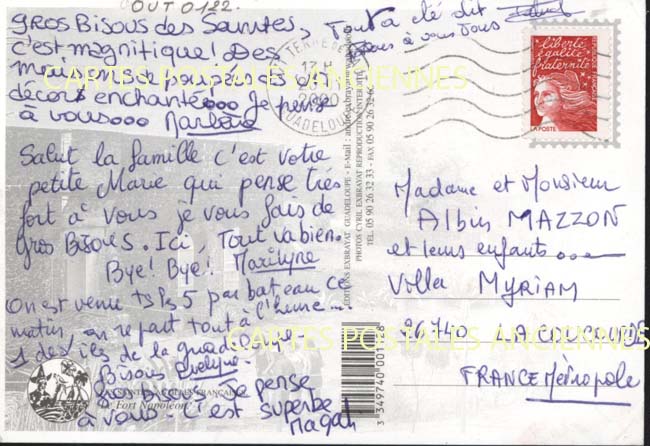 OUT 0122.
gros Bisous des Saintes,
c'est magnifique! Des
décors enchanté... Je pense
à vous... Marlène
Tout a été dit
à vous tous
Salut la famille c'est votre
petite Marie qui pense très
fort à vous je vous fais de
gros Bisous. Ici, Tout va bien.
Bye! Bye! Marilyne
On est venu ts ls 5 par bateau ce
matin, on repart tout à l'heure...
1 des îles de la guadeloupe
Bisous
gros bisous Je pense
à vous C'est superbe
Magali
Le Fort Napoléon
TERRE DE
17 H
GUADELOUPE
EDITIONS EXBRAYAT GUADELOUPE - E-Mail :
PHOTOS CYRIL EXBRAYAT REPRODUCTION INTERDITE
TEL. 05 90 26 32 33 - FAX 05 90 26 32 6
3 349740 001
liberté
égalité
fraternité
LA POSTE
Madame et Monsieur
Albin MAZZON
et leurs enfants...
Villa MYRIAM
26740
FRANCE Métropole
CARTES POSTALES ANCIENNES
CARTES POSTALES ANCIENNES